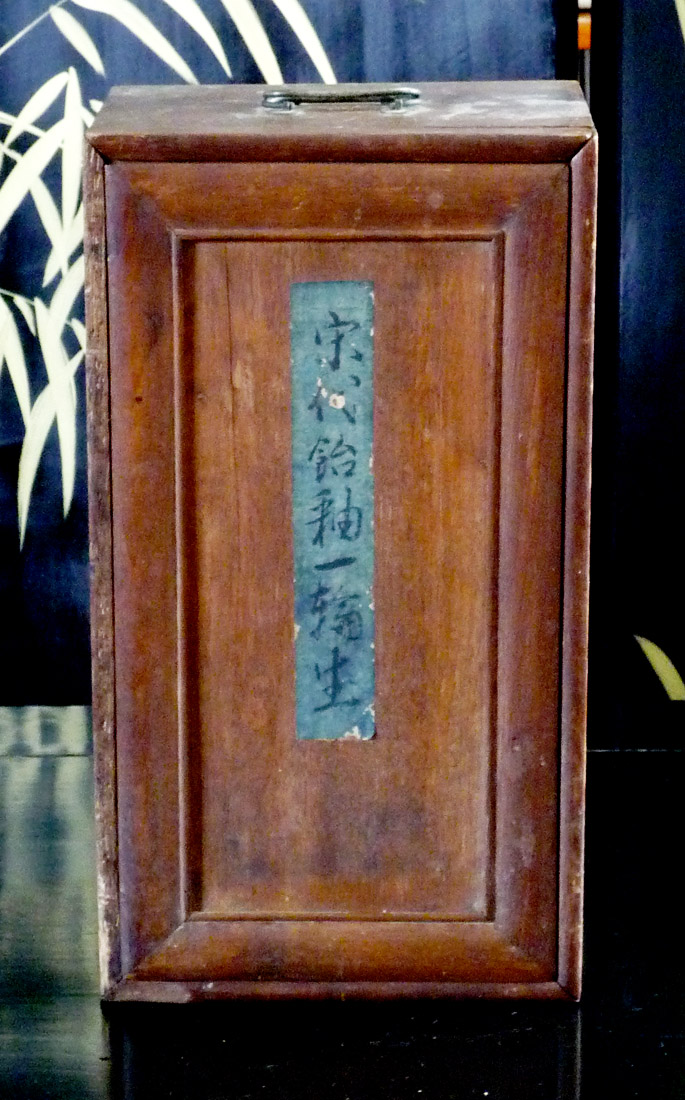 宋代飴釉一輪生